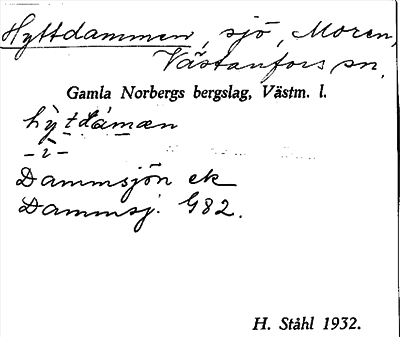 Hyttdammen, sjö, Moren,
Västanfors sn.
Gamla Norbergs bergslag, Västm. l.
hỳtdámæn
-ì-
Dammsjön ek
Dammsj. G82.
H. Ståhl 1932.